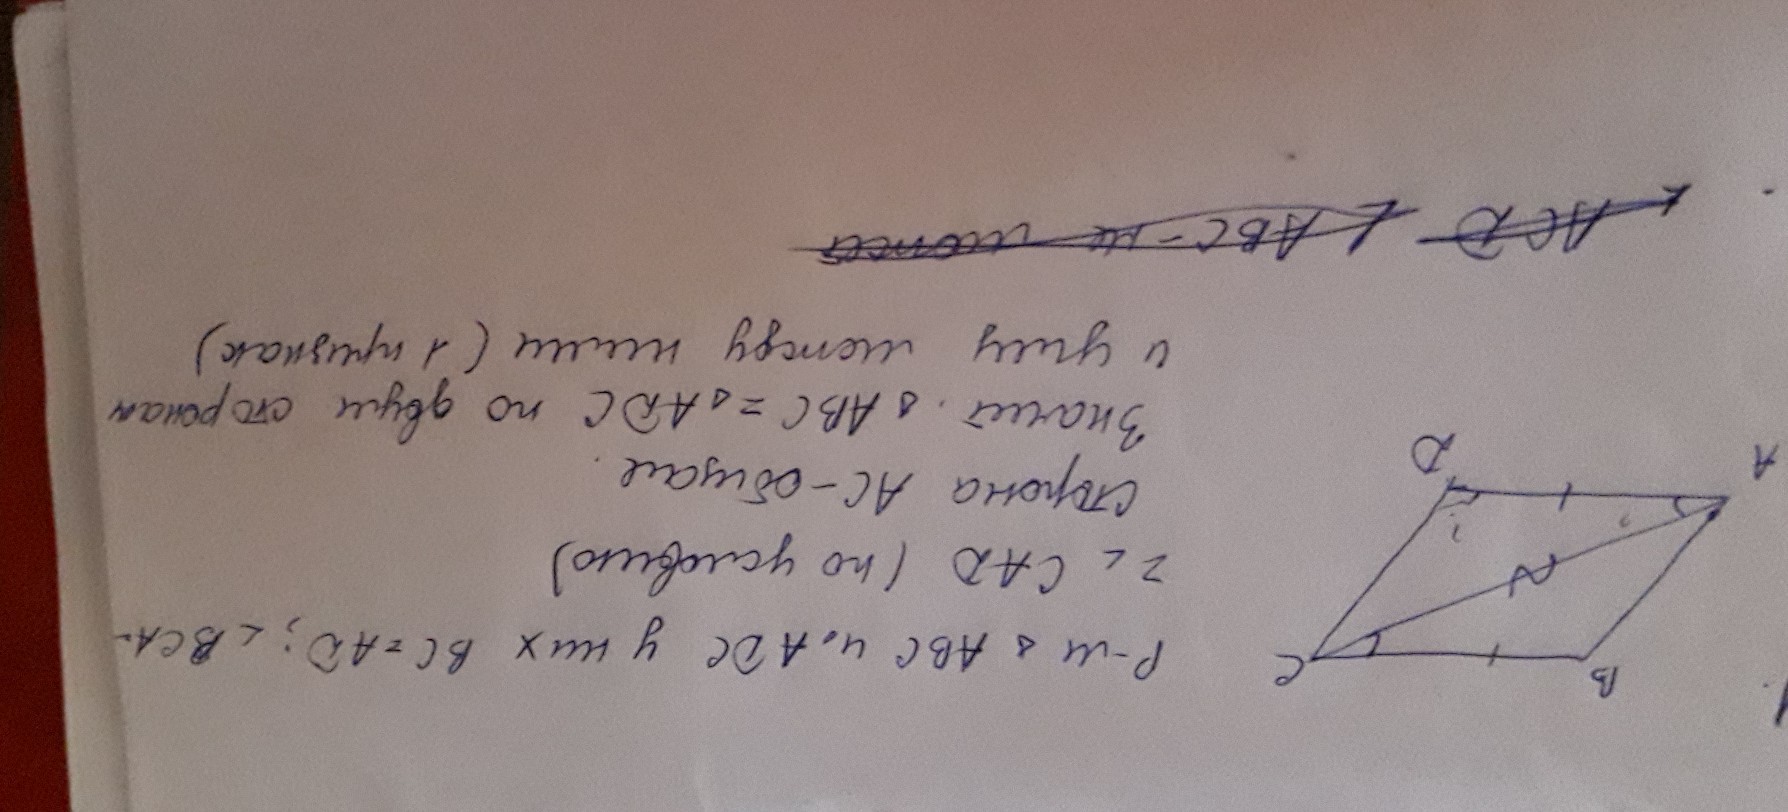 1.
B C
A D
Р-м ▵ ABC и ▵ ADC у них BC = AD; ∠ BCA-
= ∠ CAD (по условию)
сторона AC - общая.
Значит. ▵ ABC = ▵ ADC по двум сторонам
и углу между ними (1 признак)
ACD ∠ ABC -